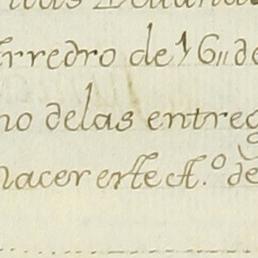 erredro de 16,, de
no delas entreg
hacer este A.º de